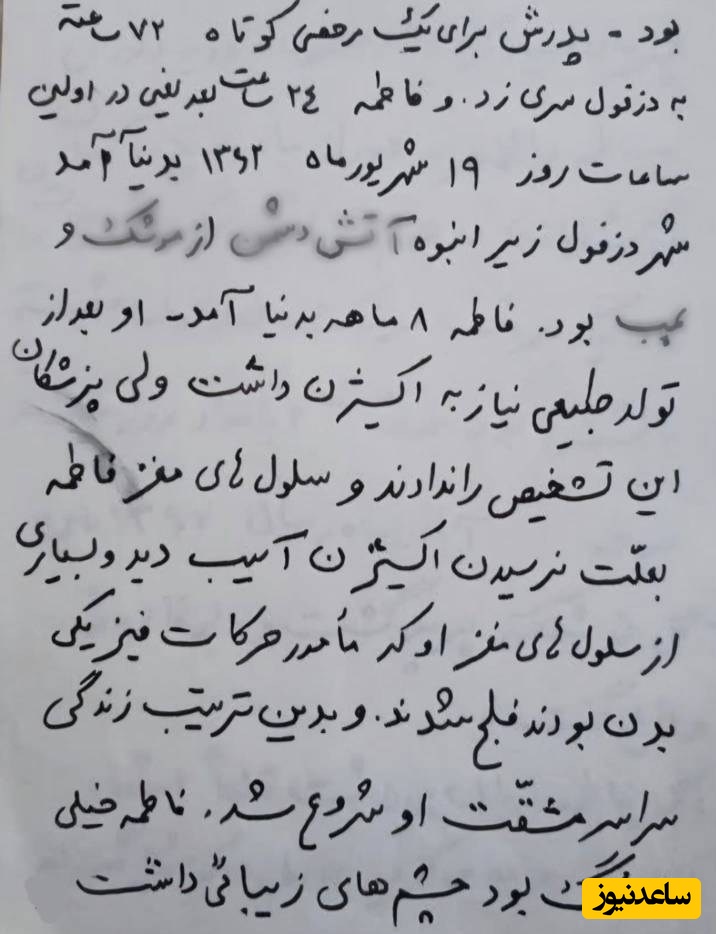 بود - پدرش برای یک مرخصی کوتاه ۷۲ ساعته
به دزفول سری زد. و فاطمه ۲۴ ساعت بعد یعنی در اولین
ساعات روز ۱۹ شهریور ماه ۱۳۶۲ بدنیا آمد
شهر دزفول زیر انبوه آتش دشمن از موشک و
بمب بود. فاطمه ۸ ماهه بدنیا آمد - او بعد از
تولد طبیعی نیاز به اکسیژن داشت ولی پزشکان
این تشخیص را ندادند و سلول های مغز فاطمه
بعلّت نرسیدن اکسیژن آسیب دید و بسیاری
از سلول های مغز او که مأمور حرکات فیزیکی
بدن بودند فلج شدند. و بدین ترتیب زندگی
سراسر مشقّت او شروع شد. فاطمه خیلی
بود چشم های زیبائی داشت
ساعدنیوز